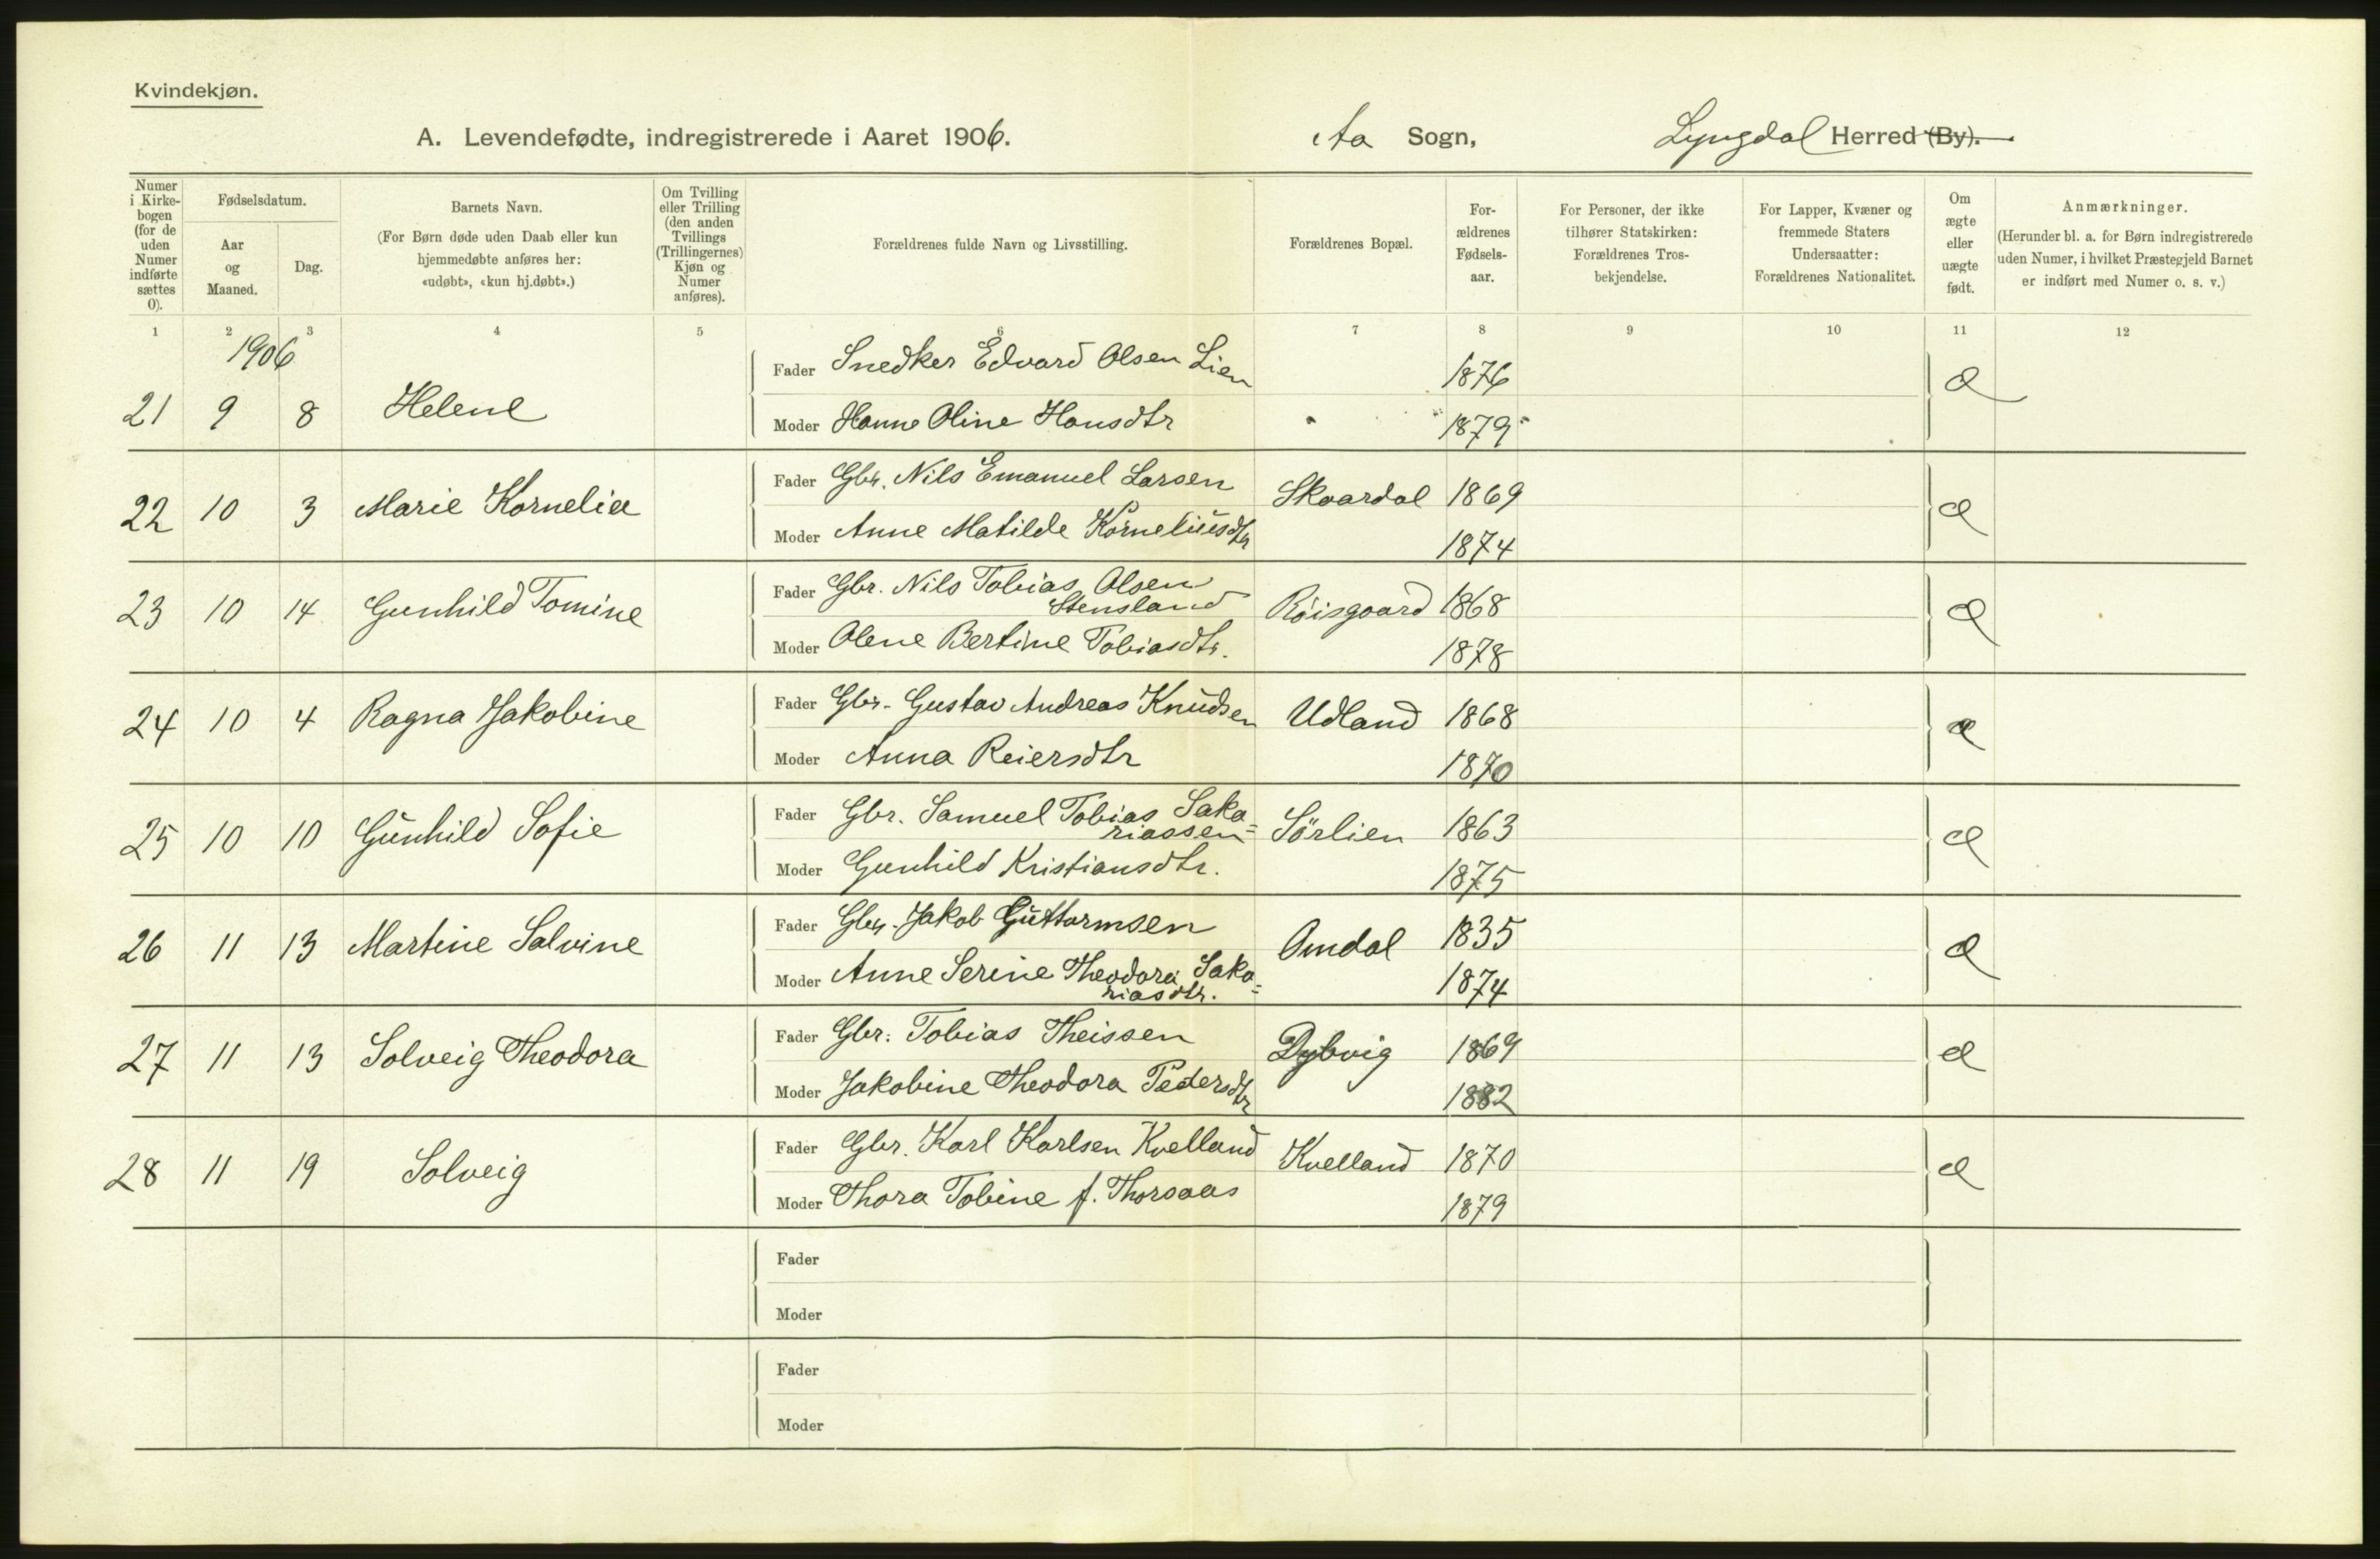 Kvindekjøn.
A. Levendefødte, indregistrerede i Aaret 1906. Aa Sogn, Lyngdal Herred (By).
Numer i Kirkebogen (for de uden Numer indførte sættes 0).
Fødselsdatum.
Aar og Maaned.
Dag.
Barnets Navn.
(For Børn døde uden Daab eller kun hjemmedøbte anføres her: «udøbt», «kun hj.døbt».)
Om Tvilling eller Trilling (den anden Tvillings (Trillingernes) Kjøn og Numer anføres).
Forældrenes fulde Navn og Livsstilling.
Forældrenes Bopæl.
For-ældrenes Fødsels-aar.
For Personer, der ikke tilhører Statskirken: Forældrenes Tros-bekjendelse.
For Lapper, Kvæner og fremmede Staters Undersaatter: Forældrenes Nationalitet.
Om ægte eller uægte født.
Anmærkninger.
(Herunder bl. a. for Børn indregistrerede uden Numer, i hvilket Præstegjeld Barnet er indført med Numer o. s. v.)
1 2 3 4 5 6 7 8 9 10 11 12
1906
21 9 8 Helene Fader Snedker Edvard Olsen Lien 1876 æ
Moder Hanne Oline Hansdtr 1879
22 10 3 Marie Kornelia Fader Gbr. Nils Emanuel Larsen Skaardal 1869 æ
Moder Anne Matilde Korneliusdtr 1874
23 10 14 Gunhild Tomine Fader Gbr. Nils Tobias Olsen Stensland Røisgaard 1868 æ
Moder Olene Bertine Tobiasdtr. 1878
24 10 4 Ragna Jakobine Fader Gbr. Gustav Andreas Knudsen Udland 1868 æ
Moder Anna Reiersdtr 1870
25 10 10 Gunhild Sofie Fader Gbr. Samuel Tobias Saka=riassen Sörlien 1863 æ
Moder Gunhild Kristiansdtr. 1875
26 11 13 Martine Salvine Fader Gbr. Jakob Guttormsen Omdal 1835 æ
Moder Anne Serine Theodora Saka=riasdtr. 1874
27 11 13 Solveig Theodora Fader Gbr: Tobias Theissen Dybvig 1869 æ
Moder Jakobine Theodora Pedersdtr 1882
28 11 19 Solveig Fader Gbr. Karl Karlsen Kvelland Kvelland 1870 æ
Moder Thora Tobine f. Thorsaas 1879
Fader
Moder
Fader
Moder